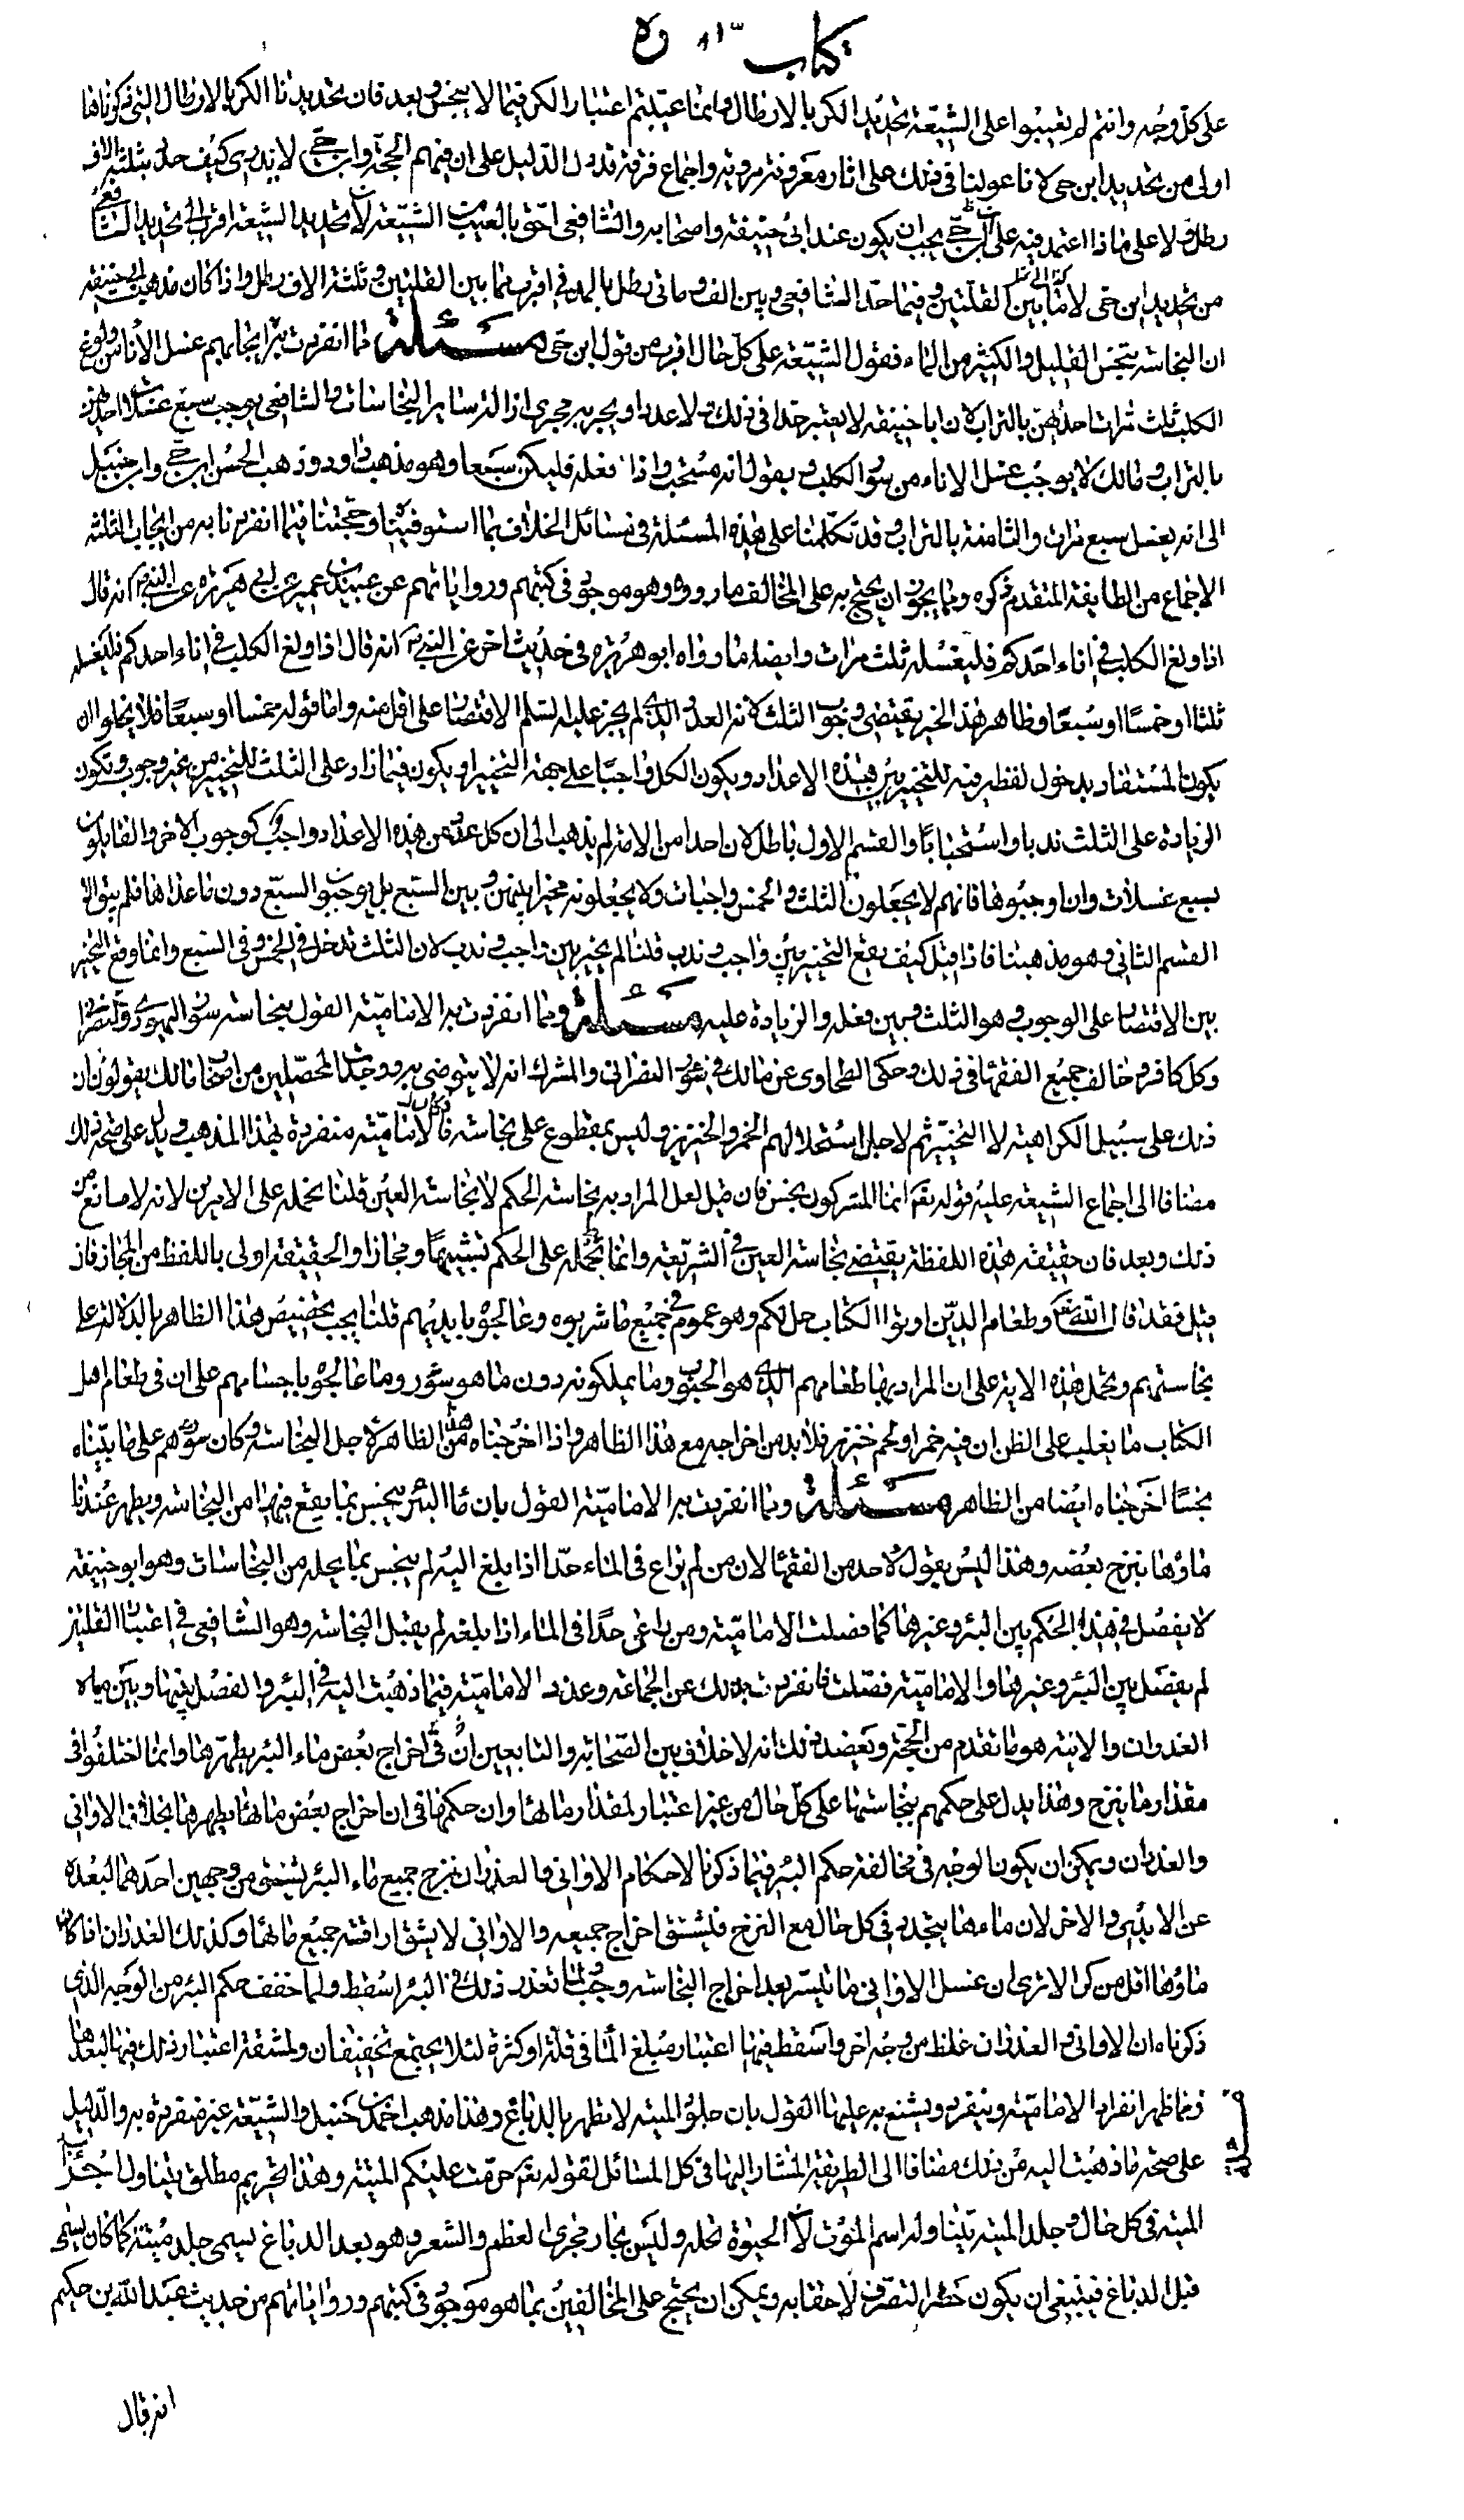 كتاب الطهارة
على كل وجه وانتم لم تعيبوا على الشيعة تحديد الكر بالارطال وانما عبتم اعتبار الكر فيما لا ينجس وبعد فان تحديدنا الكر بالارطال التي ذكرناها
اولى من تحديد ابن حى لانا عولنا في ذلك على اثار معروفة مروية واجماع فرقة قد دل الدليل على ان فيهم الحجة وابن حى لا يدرى كيف حدد بثلثة الاف
رطل ولا على ماذا اعتمد فيه على ان ابن حى يجب ان يكون عند ابى حنيفة واصحابه والشافعى احق بالعيب من الشيعة لان تحديد الشيعة اقرب الى تحديد الشافعى
من تحديد ابن حى لان ما بين القلتين وفيما حد الشافعى وبين الف ومائتى رطل بالمدنى اقرب مما بين القلتين وثلثة الاف رطل واذا كان مذهب ابى حنيفة
ان النجاسة تنجس القليل والكثير من الماء فقول الشيعة على كل حال اقرب من قول ابن حى مسئلة مما انفردت به ايجابهم غسل الاناء من ولوغ
الكلب ثلث مرات احديهن بالتراب لان ابا حنيفة لا يعتبر حدا في ذلك ولا عددا ويجريه مجرى ازالة ساير النجاسات والشافعى يوجب سبع غسلات احديهن
بالتراب ومالك لا يوجب غسل الاناء من سؤر الكلب ويقول انه مستحب واذا فعله فليكن سبعا وهو مذهب داود وذهب الحسن ابن حى وابن حنبل
الى انه يغسل سبع مرات والثامنة بالتراب وقد تكلمنا على هذه المسئلة في مسائل الخلاف بما استوفيناه وحجتنا فيما انفردنا به من ايجاب الثلثة
الاجماع من الطايفة المتقدم ذكره ومما يجوز ان يحتج به على المخالف مارووه وهو موجود في كتبهم ورواياتهم عن عبيد بن عمير عن ابى هريرة عن النبى ص انه قال
اذا ولغ الكلب في اناء احدكم فليغسله ثلث مرات وايضا ما رواه ابو هريرة في حديث اخر عن النبى ص انه قال اذا ولغ الكلب في اناء احدكم فليغسله
ثلثا او خمسا او سبعا وظاهر هذا الخبر يقتضى وجوب الثلث لانه العدد الذى لم يجز عليه السلم الاقتصار على اقل منه واما قوله خمسا او سبعا فلا يخلو ان
يكون المستفاد بدخول لفظة فيه للتخيير بين هذه الاعداد ويكون الكل واجبا على جهة التخيير او يكون فيما زاد على الثلث للتخيير من غير وجوب وتكون
الزيادة على الثلث ندبا واستحبابا والقسم الاول باطل لان احدا من الامة لم يذهب الى ان كل عدد من هذه الاعداد واجب كوجوب الاخر والقايلون
بسبع غسلات وان اوجبوها فانهم لا يجعلون الثلث والخمس واجبات ولا يجعلونه مخيرا بينهن وبين السبع بل يوجبون السبع دون ما عداها فلم يبق الا
القسم الثانى وهو مذهبنا فاذا قيل كيف يقع التخيير بين واجب وندب قلنا لم يخير بين واجب وندب لان الثلث تدخل في الخمس وفى السبع وانما وقع التخيير
بين الاقتصار على الوجوب وهو الثلث وبين فعله والزيادة عليه مسئلة ومما انفردت به الامامية القول بنجاسة سؤر اليهودى والنصرانى
وكل كافر وخالف جميع الفقهاء في ذلك وحكى الطحاوى عن مالك في سؤر النصرانى والمشرك انه لا يتوضى به ووجدت المحصلين من اصحاب مالك يقولون ان
ذلك على سبيل الكراهية لا التحريم لاجل استحلالهم الخمر والخنزير وليس بمقطوع على نجاسته فالامامية منفردة بهذا المذهب ويدل على صحة ذلك
مضافا الى اجماع الشيعة عليه قوله تعـ انما المشركون نجس فان قيل لعل المراد به نجاسة الحكم لا نجاسة العين قلنا نحمله على الامرين لانه لا مانع من
ذلك وبعد فان حقيقة هذه اللفظة يقتضى نجاسة العين في الشريعة وانما تحمله على الحكم تشبيها ومجازا والحقيقة اولى باللفظ من المجاز فان
قيل فقد قال الله تعـ وطعام الذين اوتوا الكتاب حل لكم وهو عموم في جميع ما شربوه وعالجوه بايديهم قلنا يجب تخصيص هذا الظاهر بالدلالة على
نجاستهم ونحمل هذه الاية على ان المراد بها طعامهم الذى هو الحبوب وما يملكونه دون ما هو سؤر وما عالجوه باجسامهم على ان في طعام اهل
الكتاب ما يغلب على الظن ان فيه خمرا او لحم خنزير فلا بد من اخراجه مع هذا الظاهر واذا اخرجناه من هذا الظاهر لاجل النجاسة وكان سؤرهم على ما بيناه
نجسا اخرجناه ايضا من الظاهر مسئلة ومما انفردت به الامامية القول بان ماء البئر ينجس بما يقع فيها من النجاسة ويطهر عندنا
ماؤها بنزح بعضه وهذا ليس بقول لاحد من الفقهاء لان من لم يراع في الماء حدا اذا بلغ اليه لم ينجس بما يحله من النجاسات وهو ابو حنيفة
لا يفصل في هذا الحكم بين البئر وغيرها كما فصلت الامامية ومن راعى حدا في الماء اذا بلغه لم يقبل النجاسة وهو الشافعى في اعتبار القلتين
لم يفصل بين البئر وغيرها والامامية فصلت فانفردت بذلك عن الجماعة وعذر الامامية فيما ذهبت اليه في البئر والفصل بينها وبين مياه
الغدران والانية هو ما تقدم من الحجة ويعضد ذلك انه لا خلاف بين الصحابة والتابعين في ان اخراج بعض ماء البئر يطهرها وانما اختلفوا في
مقدار ما ينزح وهذا يدل على حكمهم بنجاستها على كل حال من غير اعتبار لمقدار مائها وان حكمها في ان اخراج بعض مائها يطهرها بخلاف الاوانى
والغدران ويمكن ان يكون الوجه في مخالفة حكم البئر فيما ذكرنا لاحكام الاوانى والغدران ان نزح جميع ماء البئر يشق من وجهين احدهما لبعده
عن الايدى والاخر لان ماءها يتجدد في كل حال مع النزح فيشق اخراج جميعه والاوانى لا يشق اراقة جميع مائها وكذلك الغدران اذا كان
ماؤها اقل من كر الا ترى ان غسل الاوانى ما تيسر بعد اخراج النجاسة وجب لما تعذر ذلك في البئر اسقط ولما خفف حكم البئر من الوجه الذى
ذكرناه ان الاوانى والغدران غلظ من وجه اخر واسقط فيها اعتبار مبلغ الماء في قلة او كثرة لئلا يجتمع تخفيفان ولمشقة اعتبار ذلك فيها لبعدها
ومما ظهر انفراد الامامية وينفرد ويشنع به عليها القول بان جلود الميتة لا تطهر بالدباغ وهذا مذهب احمد بن حنبل والشيعة غير منفردة به والدليل
على صحة ما ذهبت اليه من ذلك مضافا الى الطريقة المشار اليها في كل المسائل لقوله تعـ حرمت عليكم الميتة وهذا التحريم مطلق يتناول اجزاء
الميتة في كل حال وجلد الميتة يتناوله اسم الموت لان الحيوة تحله وليس بجار مجرى العظم والشعر وهو بعد الدباغ يسمى جلد ميتة كما كان يسمى
قبل الدباغ فينبغى ان يكون حظر التصرف لاحقا به ويمكن ان يحتج على المخالفين بما هو موجود في كتبهم ورواياتهم من حديث عبد الله بن حكيم
انه قال